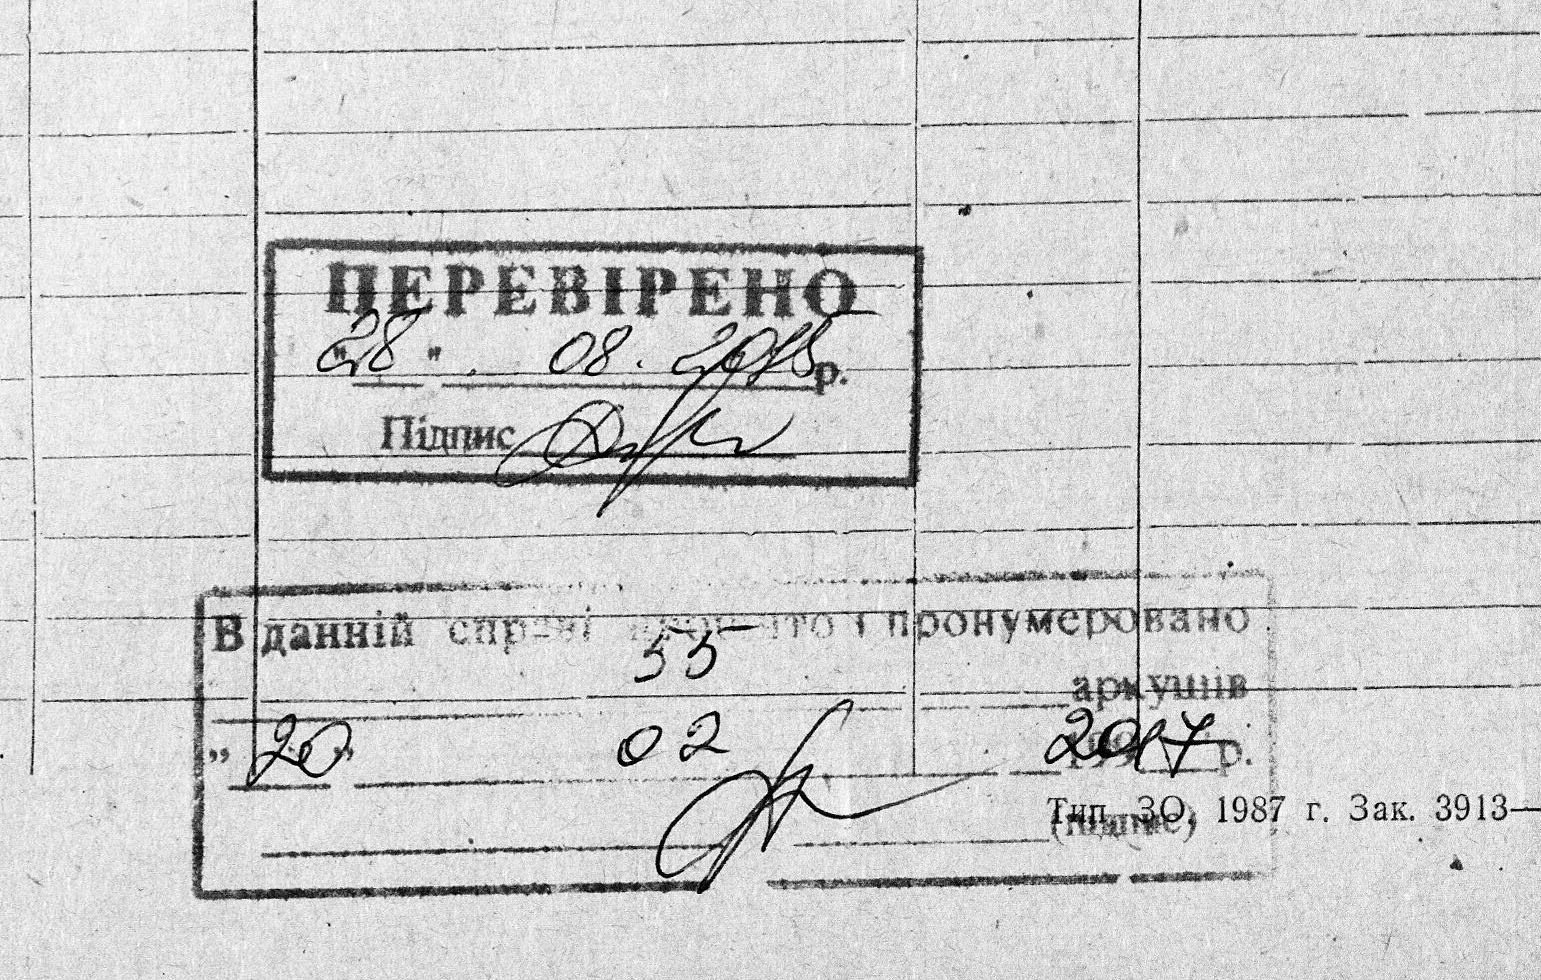 ПЕРЕВІРЕНО
"28" . 08. 2015 р.
Підпис
В данній справі прошито і пронумеровано
55
аркушів
„ 20 " 02 2017 р.
Тип. ЗО, 1987 г. Зак. 3913—
(підпис)